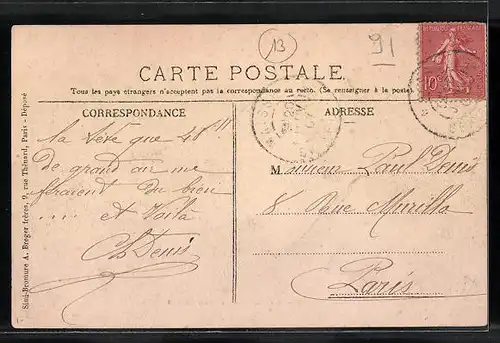 13
91
REPUBLIQUE FRANCAISE
10
CARTE POSTALE
Tous les pays étrangers n'acceptent pas la correspondance au recto. (Se renseigner à la poste.)
CORRESPONDANCE
ADRESSE
la tête que 48 h
de grand air me
feraient du bien
.... et voila
Ch Denis
Monsieur Paul Denis
8 Rue Murillo
Paris
Simi-Bromure A. Breger frères, 9, rue Thénard, Paris - Déposé